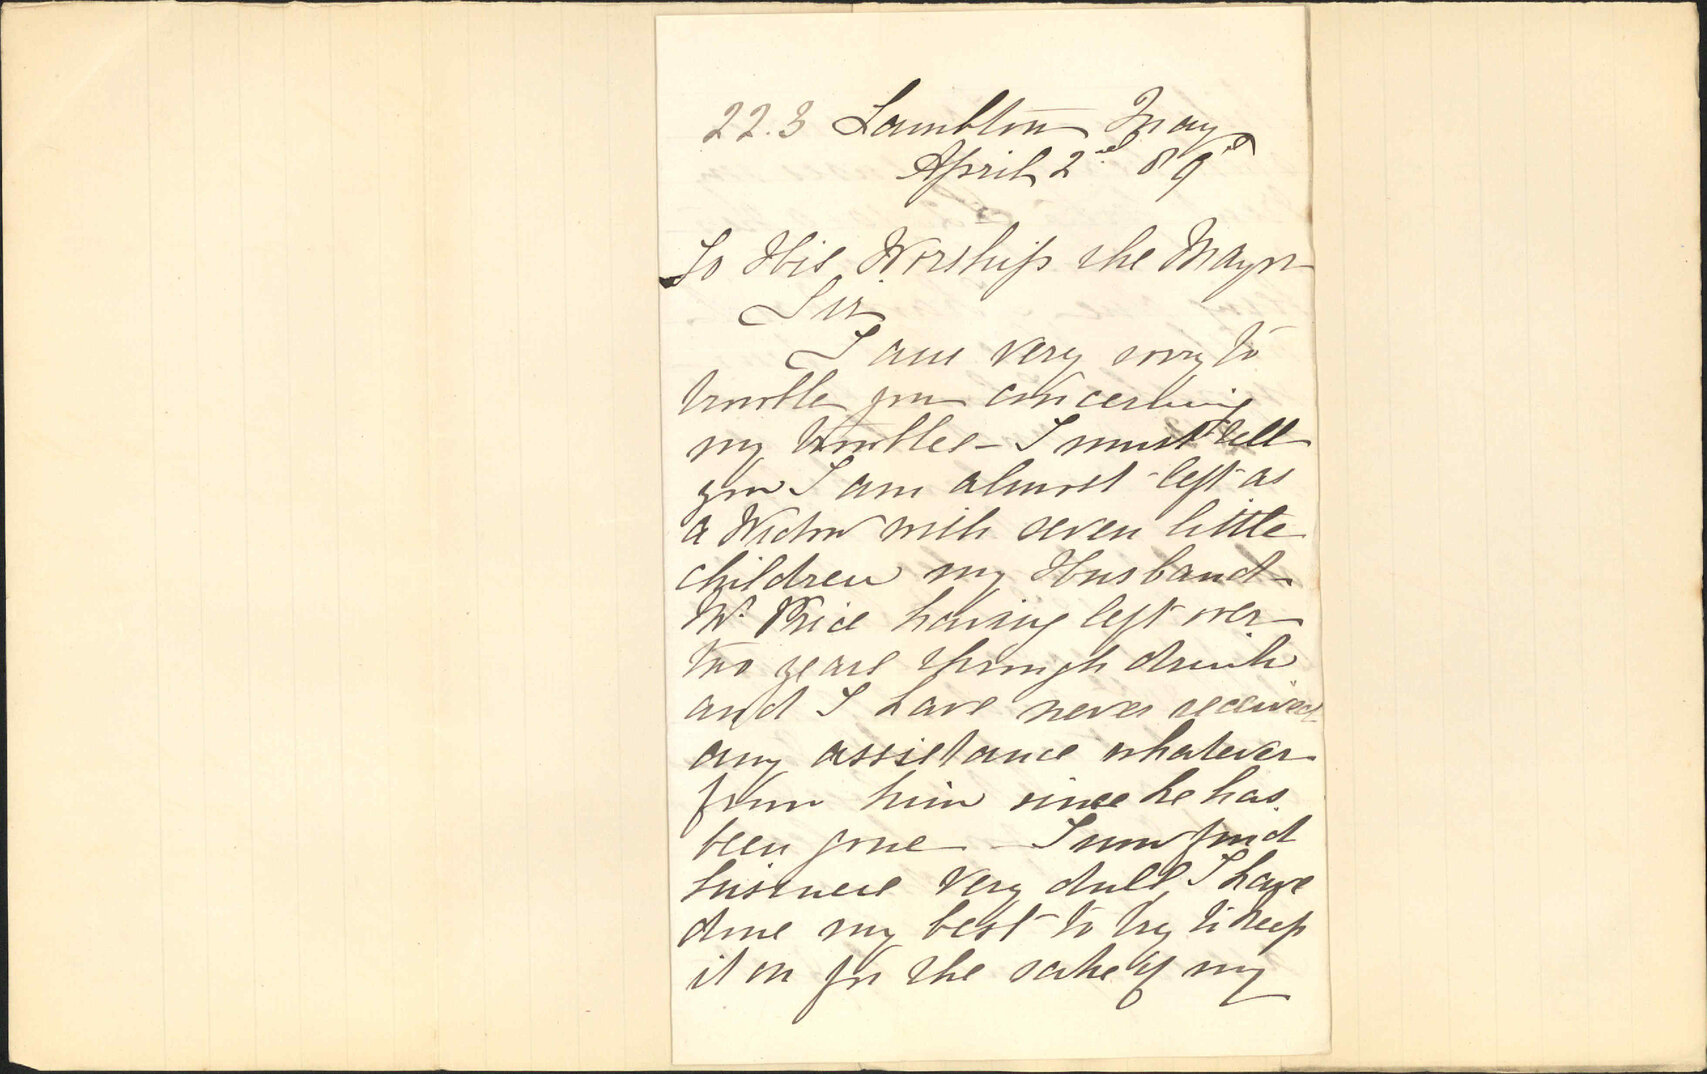 223 Lambton Quay
April 2nd 89
To His Worship the Mayor
Sir
I am very sorry to
trouble you concerning
my troubles - I must tell
you I am almost left as
a Widow with seven little
children my Husband
Mr. Price having left over
two years through drink
and I have never received
any assistance whatever
from him since he has
been gone - I now find
business very dull, I have
done my best to try to keep
it on for the sake of my